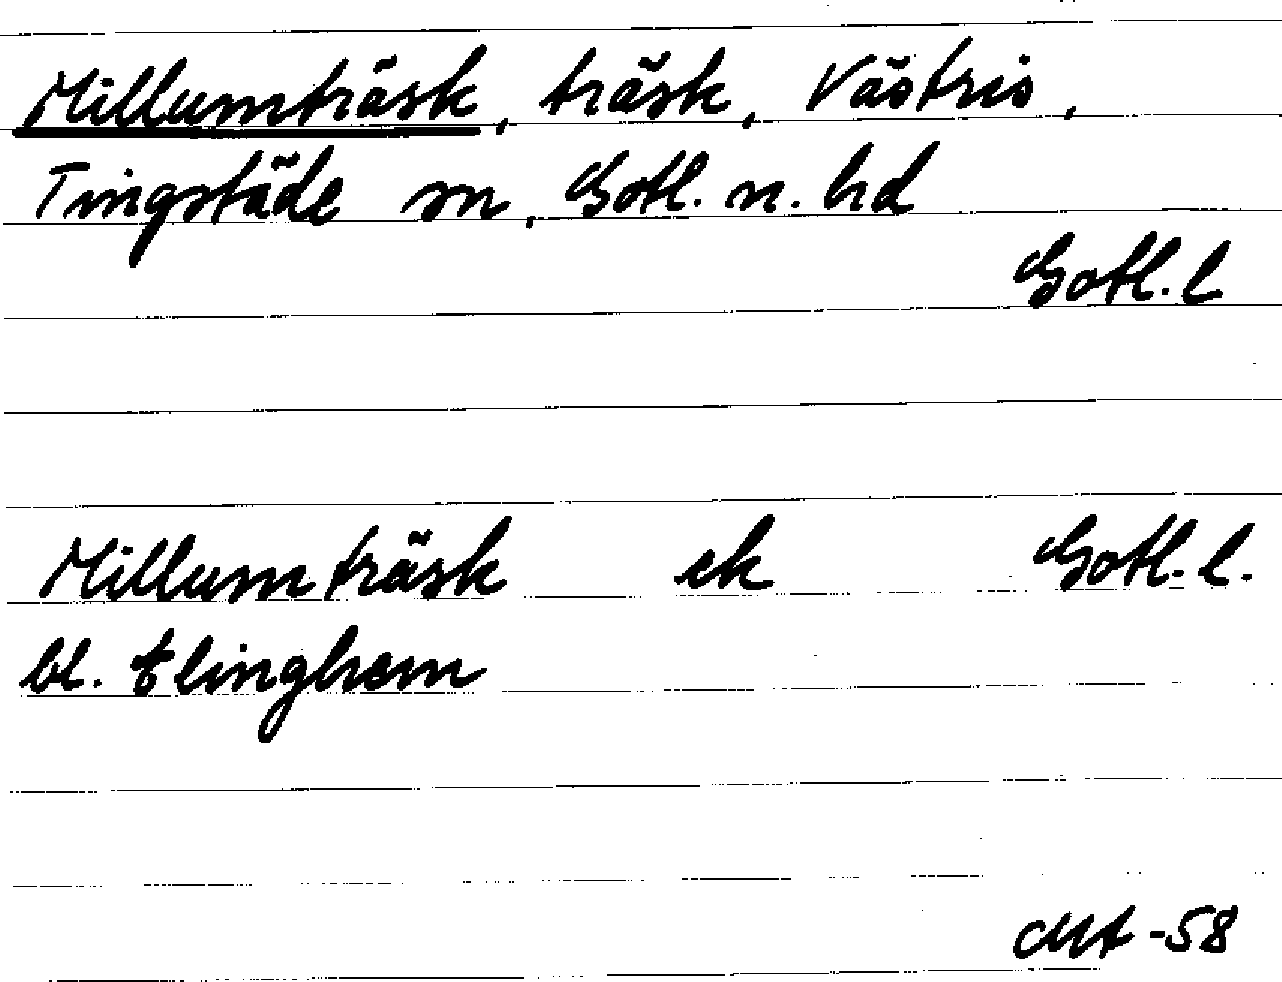 Millumträsk, träsk, Västris,
Tingstäde sn, Gotl. n. hd
Gotl. l
Millumträsk ek Gotl. l.
bl. Elinghem
-58